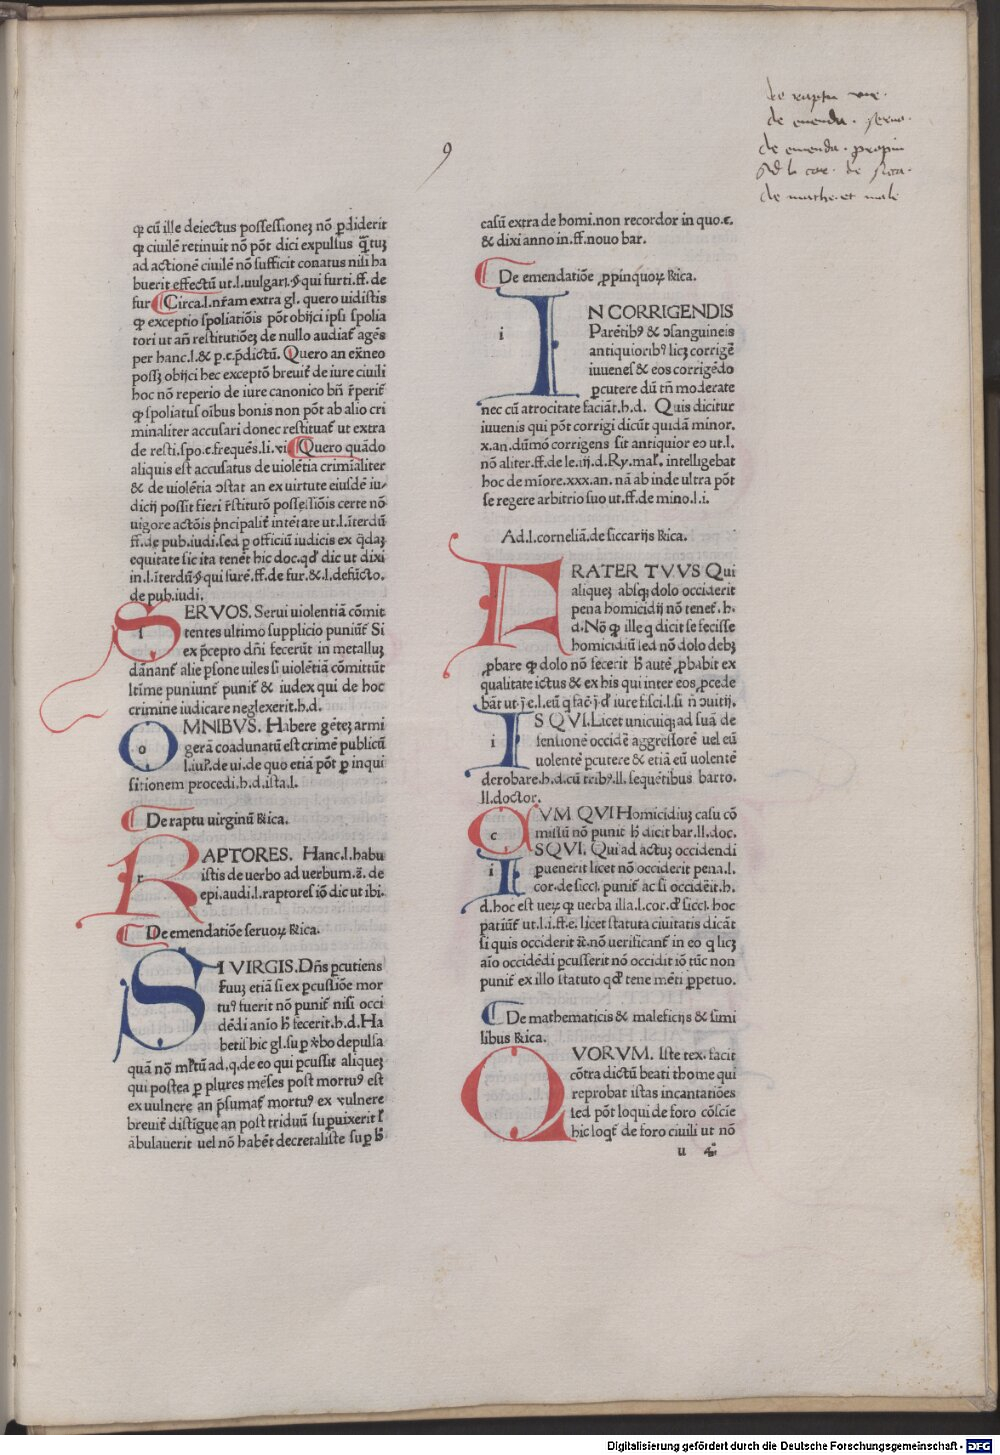 de raptu vir.
de emenda. servo.
de emenda. propin
Ad l. cor. de sica.
de mathe. et male
9
ꝙ cū ille deiectus possessioneꝫ nō ꝑdiderit
ꝙ ciuilē retinuit nō pōt dici expulsus q̄tuꝫ
ad actionē ciuilē nō sufficit conatus nisi ha
buerit effectū ut.l.uulgaris.§ qui furti.ff.de
fur Circa.l.nr̄am extra gl. quero uidistis
ꝙ exceptio spoliatiōis pōt obijci ipsi spolia
tori ut an̄ restitutiōeꝫ de nullo audiat̄ agēs
per hanc.l.& p.e.p̄dictū. Quero an ex̄neo
possꝫ obijci hec exceptō breuit̄ de iure ciuili
hoc nō reperio de iure canonico bn̄ r̄perit̄
ꝙ spoliatus oībus bonis non pōt ab alio cri
minaliter accusari donec restituat̄ ut extra
de resti.spo.c.frequēs.li.vi Quero quādo
aliquis est accusatus de uiolētia crimīaliter
& de uiolētia ↄstat an ex uirtute eiusdē iu-
dicij possit fieri r̄stitutō possessiōis certe nō
uigore actōis p̄ncipalit̄ intētate ut.l.īterdū
ff.de pub.iudi.sed ꝑ officiū iudicis ex q̄daꝫ
equitate sic ita tenēt hic doc.qđ dic ut dixi
in.l.īterdū § qui furē.ff.de fur.&.l.defūcto.
de pub.iudi.
SERVOS. Serui uiolentiā cōmit
tentes ultimo supplicio puniūt̄ Si
ex p̄cepto dn̄i fecerūt in metalluꝫ
dānant̄ alie ꝑsone uiles si uiolētiā cōmittūt
ltīme puniunt̄ punit̄ & iudex qui de hoc
crimine iudicare neglexerit.h.d.
OMNIBVS. Habere gēteꝫ armi
gerā coadunatū est crimē publicū
l.iul̄.de ui.de quo etiā pōt ꝑ inqui
sitionem procedi.h.d.ista.l.
De raptu virginū Rica.
RAPTORES. Hanc.l.habu
istis de verbo ad uerbum.ā.de
epi.audi.l.raptores iō dic ut ibi.
De emendatiōe seruoꝝ Rica.
SI VIRGIS. Dn̄s ꝑcutiens
suuꝫ etiā si ex ꝑcussiōe mor
tuꝰ fuerit nō punit̄ nisi occi
dēdi anio h̄ fecerit.h.d.Ha
betis hic gl.suꝑ v̄bo depulsa
quā nō ml̄tū ad.q.de eo qui ꝑcussit aliqueꝫ
qui postea ꝑ plures mēses post mortuꝰ est
ex uulnere an p̄sumat̄ mortuꝰ ex vulnere
breuit̄ distīgue an post triduū suꝑuixerit l̄
ābulauerit uel nō habēt decretaliste suꝑ h̄
casū extra de homi.non recordor in quo.c.
& dixi anno in.ff.nouo bar.
De emendatiōe ꝓpinquoꝝ Rica.
IN CORRIGENDIS
Parētibꝰ & ↄsanguineis
antiquioribꝰ licꝫ corrigē
iuuenes & eos corrigēdo
ꝑcutere dū tn̄ moderate
nec cū atrocitate faciāt.h.d. Quis dicitur
iuuenis qui pōt corrigi dicūt quidā minor.
x.an.dūmō corrigens sit antiquior eo ut.l.
nō aliter.ff.de le.iij.d.Ry.mal̄.intelligebat
hoc de mīore.xxx.an.nā ab inde ultra pōt
se regere arbitrio suo ut.ff.de mino.l.i.
Ad.l.corneliā.de siccarijs Rica.
FRATER TVVS Qui
aliqueꝫ absqꝫ dolo occiderit
pena homicidij nō tenet̄.h.
d.Nō ꝙ ille q dicit se fecisse
homicidiū sed nō dolo debꝫ
ꝓbare ꝙ dolo nō fecerit h̄ autē ꝓbabit ex
qualitate ictus & ex his qui inter eos ꝓcede
bāt ut.j.e.l.eū q facē.j.đ iure fisci.l.si n̄ ↄuitij.
IS QVI. Licet unicuiqꝫ ad suā de
sensionē occidē aggressorē uel eū
uolentē ꝑcutere & etiā eū uolentē
derobare.h.d.cū tribꝰ.ll.sequētibus barto.
ll.doctor.
CVM QVI Homicidiuꝫ casu cō
missū nō punit̄ h̄ dicit bar.ll.doc.
ISQVI. Qui ad actuꝫ occidendi
ꝑuenerit licet nō occiderit pena.l.
cor.de sicci. punit̄ ac si occidēit.h.
d.hoc est ueꝝ ꝙ uerba illa.l.cor.đ sicci.hoc
patiūt̄ ut.l.i.ff.e.licet statuta ciuitatis dicāt
si quis occiderit &c̄.nō uerificant̄ in eo q licꝫ
aīo occidēdi ꝑcusserit nō occidit iō tūc non
punit̄ ex illo statuto qđ tene mēti ꝑpetuo.
De mathematicis & maleficijs & simi
libus Rica.
QVORVM. Iste tex.facit
cōtra dictū beati thome qui
reprobat istas incantatiōes
sed pōt loqui de foro cōscie
hic loqt̄ de foro ciuili ut nō
u 4
Digitalisierung gefördert durch die Deutsche Forschungsgemeinschaft - DFG